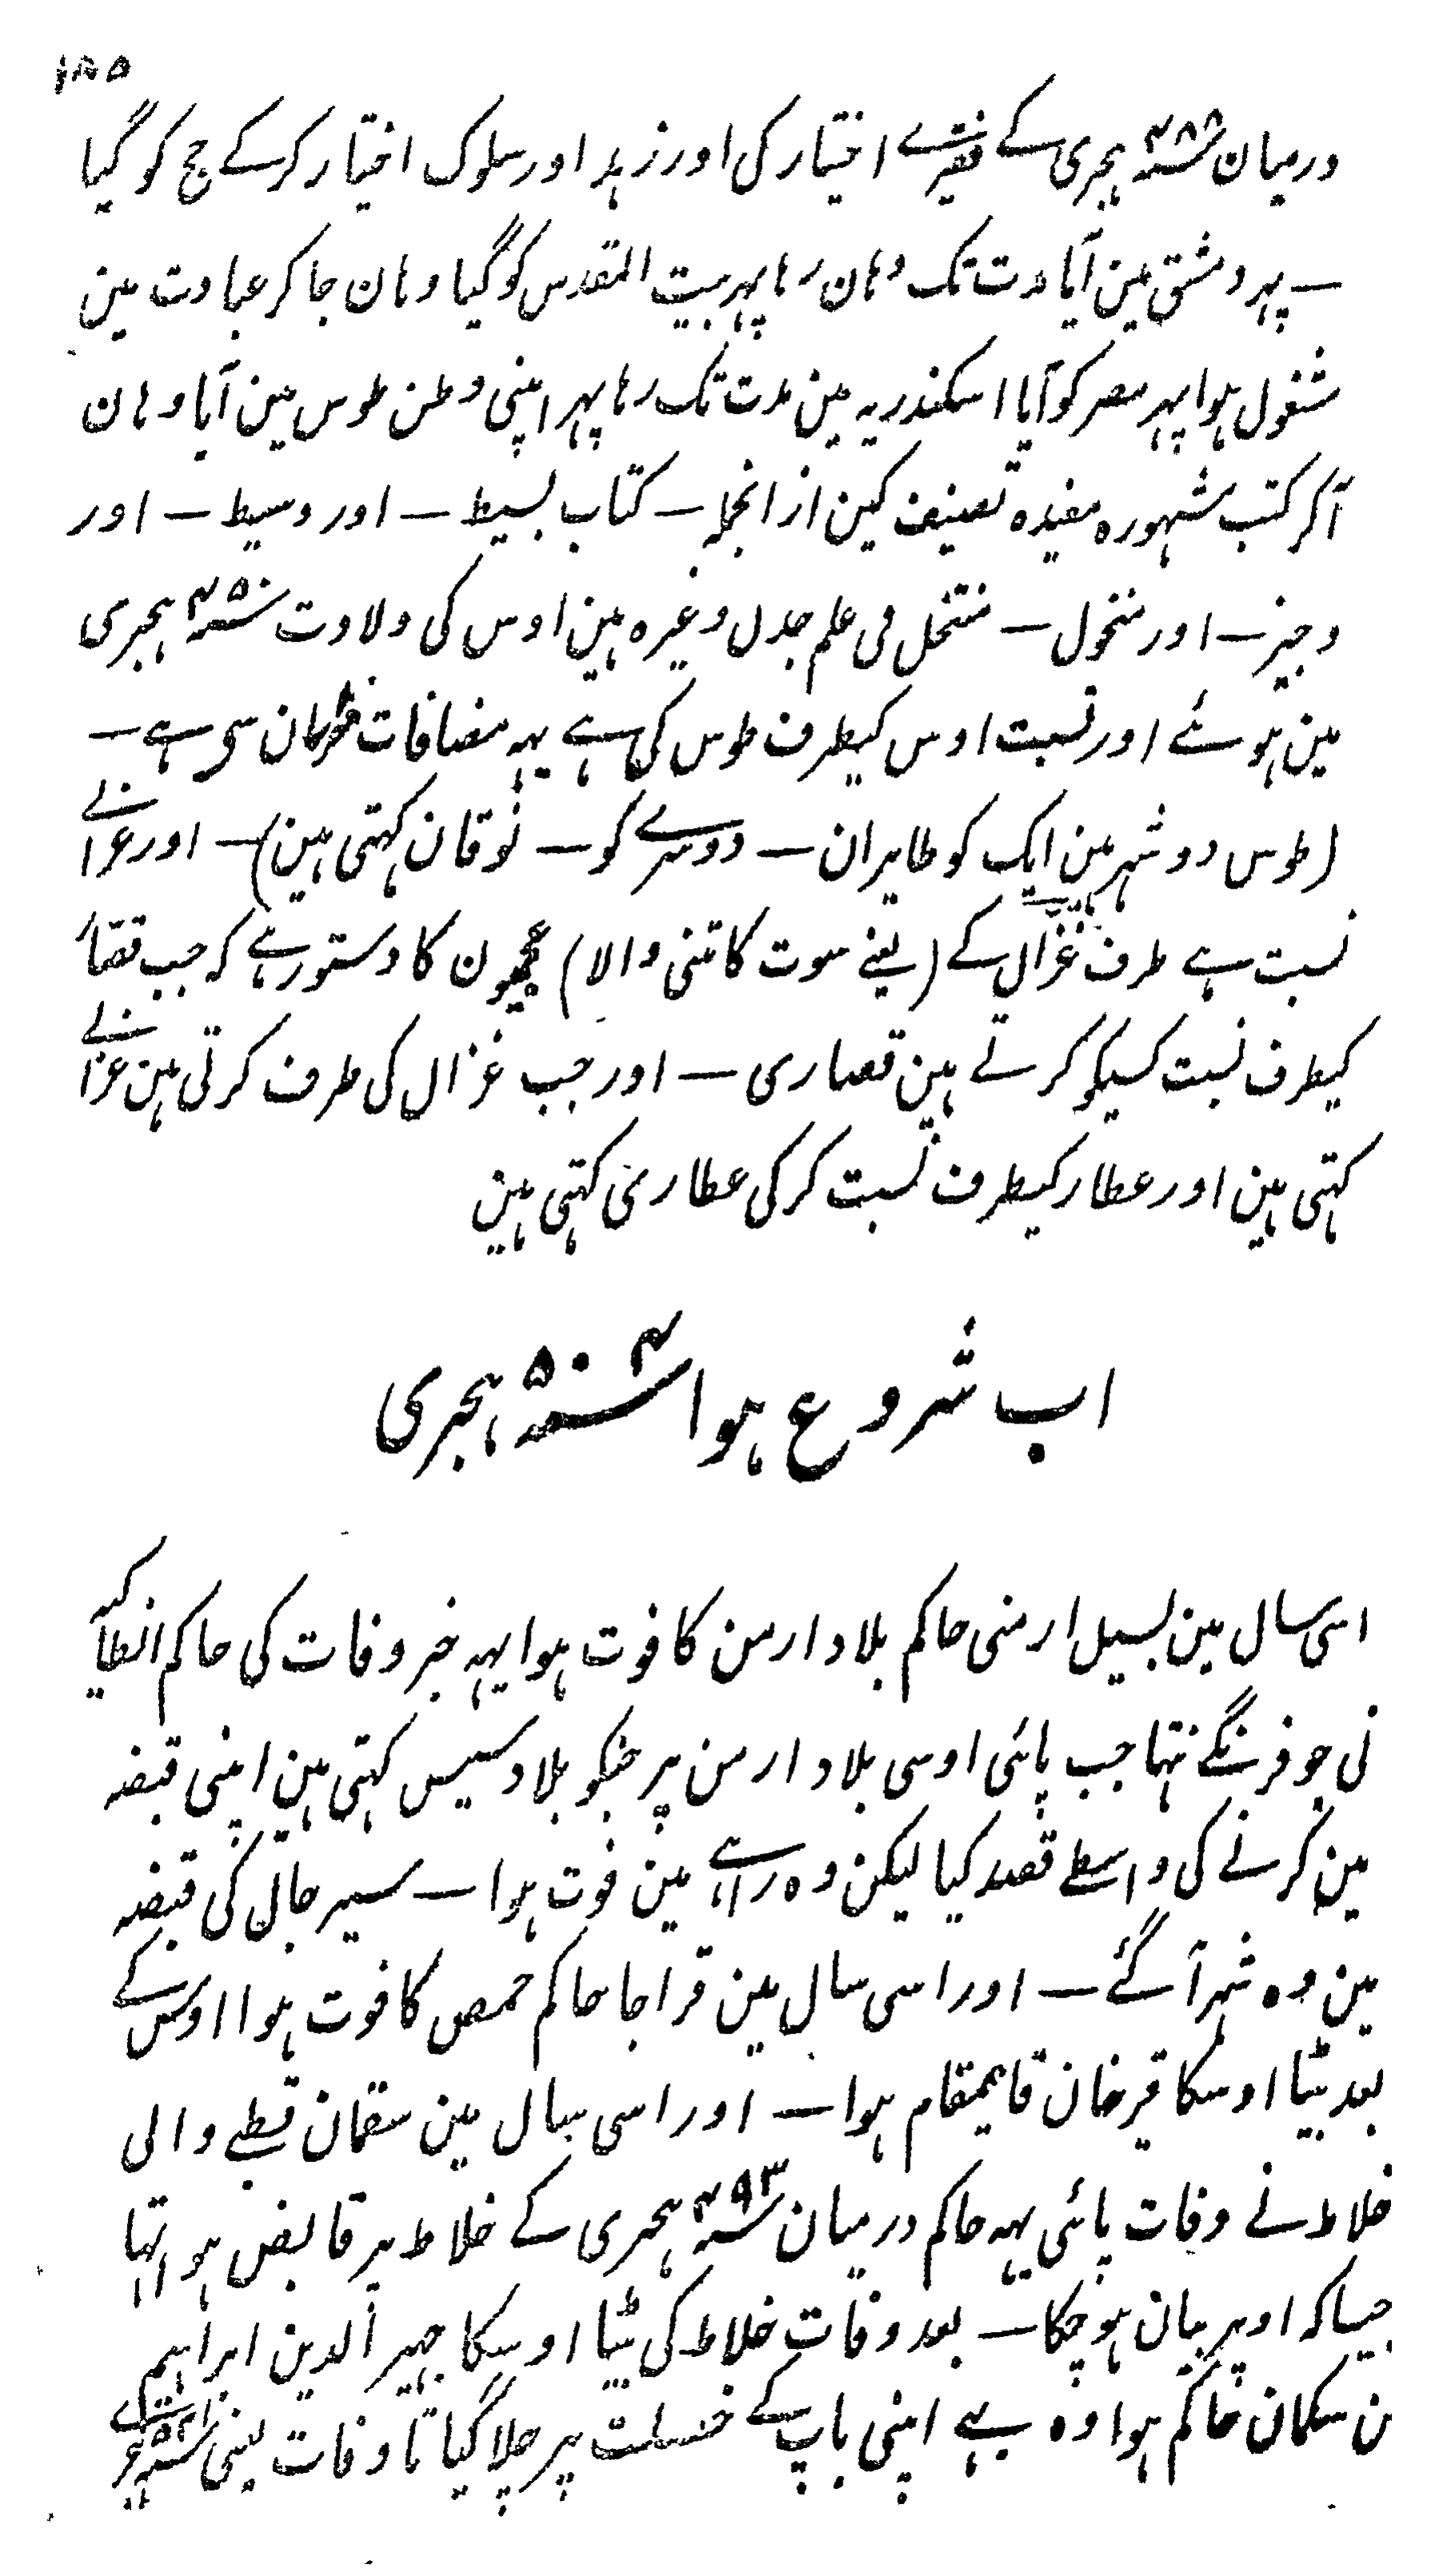 ۱۸۵
درمیان ۴۸۸ ہجری کے فقیرے اختیار کی اور زہد اور سلوک اختیار کرکے حج کو گیا
— پہر دمشق مین آیا مدت تک وہان رہا پہر بیت المقدس کو گیا وہان جا کر عبادت مین
مشغول ہوا پہر مصر کو آیا اسکندریہ مین مدت تک رہا پہر اپنی وطن طوس مین آیا وہان
آ کر کتب مشہورہ مفیدہ تصنیف کین از انجملہ — کتاب بسیط — اور وسیط — اور
وجیز — اور منخول — منتخل فی علم جدل وغیرہ ہین اوس کی ولادت ۴۵۰ ہجری
مین ہوئے اور نسبت اوس کیطرف طوس کی ہے یہہ مضافات سی ہے —
(طوس دو شہر ہین ایک کو طابران — دوسرے کو — نوقان کہتی ہین) — اور غزالے
نسبت ہے طرف غزال کے (یعنے سوت کاتنی والا) عجمیون کا دستور ہے کہ جب قصار
کیطرف نسبت کسیکو کرتے ہین قصاری — اور جب غزال کی طرف کرتی ہین غزالے
کہتی ہین اور عطار کیطرف نسبت کر کی عطاری کہتی ہین
اب شروع ہوا ۵۰۴ ہجری
اسی سال مین بسیل ارمنی حاکم بلاد ارمن کا فوت ہوا یہہ خبر وفات کی حاکم انطاکیہ
نی جو فرنگے تہا جب پائی اوسی بلاد ارمن پر جنکو بلاد سیس کہتی ہین اپنی قبضہ
مین کرنے کی واسطے قصد کیا لیکن وہ راہے مین فوت ہوا — سیر جال کی قبضہ
مین وہ شہر آگئے — اور اسی سال مین قراجا حاکم حمص کا فوت ہوا اوس کے
بعد بیٹا اوسکا قیرخان قایمقام ہوا — اور اسی سال مین سقمان قطبے والی
خلاط نے وفات پائی یہہ حاکم درمیان ۴۹۳ ہجری کے خلاط پر قابض ہوا تہا
جیسا کہ اوپر بیان ہو چکا — بعد وفات خلاط کی بیٹا اوسکا ظہیر الدین ابراہیم
بن سکمان حاکم ہوا وہ بہے اپنی باپ کے خصلت پر چلا گیا تا وفات یعنی